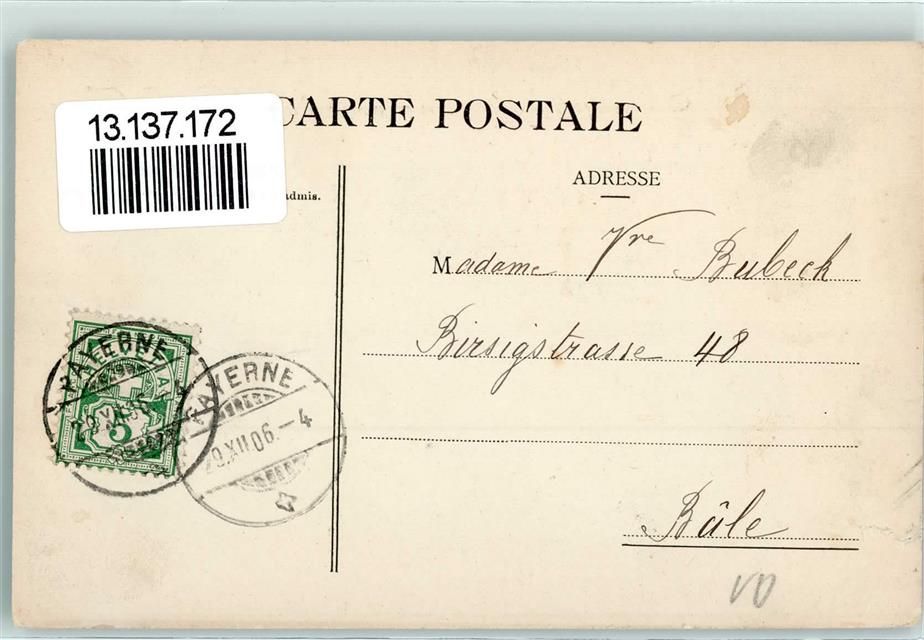 13.137.172
CARTE POSTALE
admis.
ADRESSE
Madame Vve Bubeck
Birsigstrasse 48
Bâle
PAYERNE
PAYERNE
9.XII.06.-4
5
VD